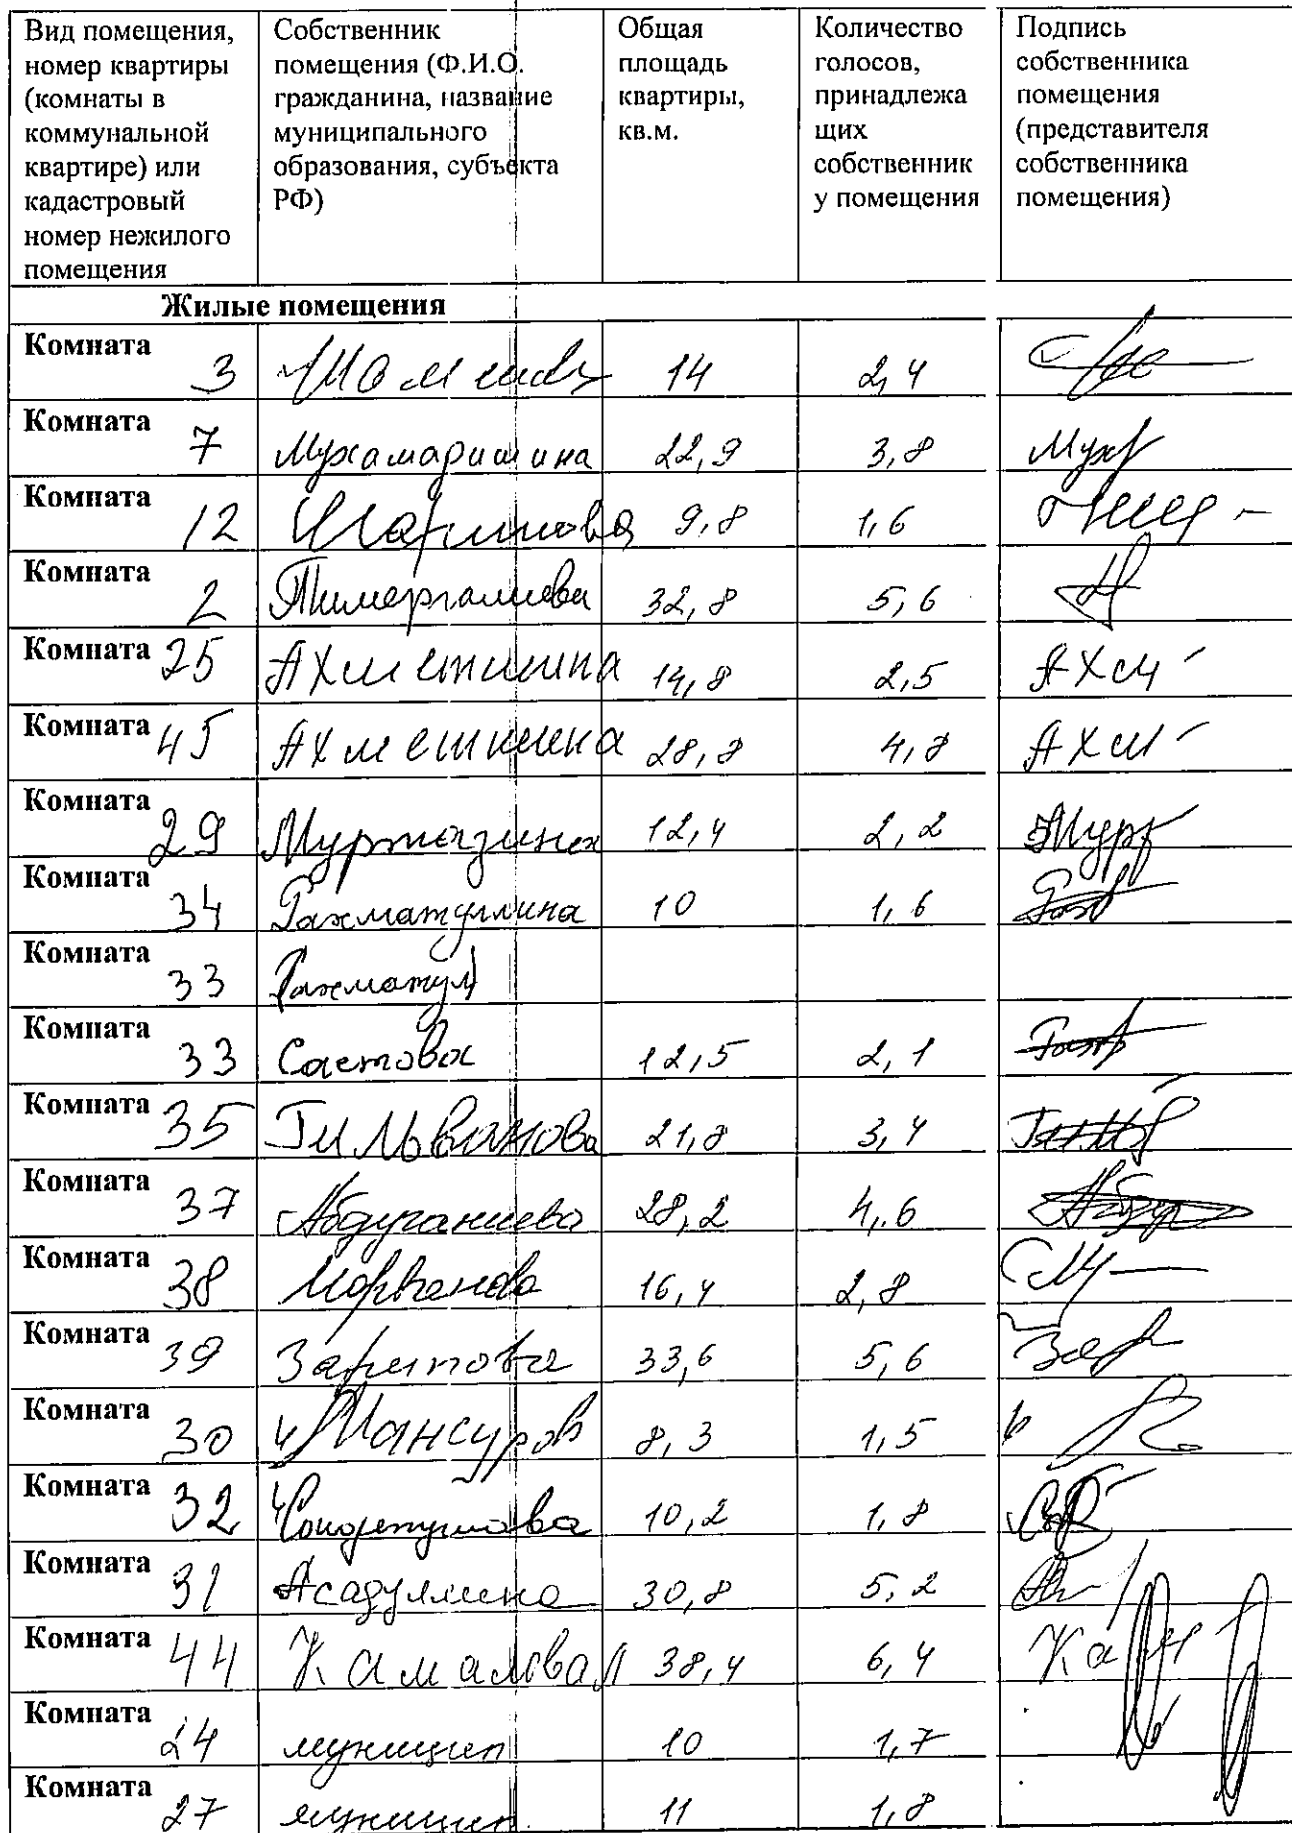 Вид помещения, номер квартиры (комнаты в коммунальной квартире) или кадастровый номер нежилого помещения
Собственник помещения (Ф.И.О. гражданина, название муниципального образования, субъекта РФ)
Общая площадь квартиры, кв.м.
Количество голосов, принадлежа щих собственник у помещения
Подпись собственника помещения (представителя собственника помещения)
Жилые помещения
Комната 3 14 2,4
Комната 7 Мухамаришина 22,9 3,8 Мух
Комната 12 Шарипова 9,8 1,6
Комната 2 Тимергалиева 32,8 5,6
Комната 25 Ахметшина 14,8 2,5 Ахм
Комната 45 Ахметшина 28,8 4,8 Ахм
Комната 29 Муртазина 12,4 2,2 Мурт
Комната 34 Рахматуллина 10 1,6
Комната 33 Рахматул
Комната 33 Саетова 12,5 2,1
Комната 35 Гильванова 21,8 3,4
Комната 37 Абдуганиева 28,2 4,6
Комната 38 16,4 2,8
Комната 39 Зарипова 33,6 5,6 Зар
Комната 30 Мансуров 8,3 1,5
Комната 32 10,2 1,8
Комната 31 Асадуллина 30,8 5,2
Комната 44 Камалова 38,4 6,4 Кам
Комната 24 муницип 10 1,7
Комната 27 муницип. 11 1,8